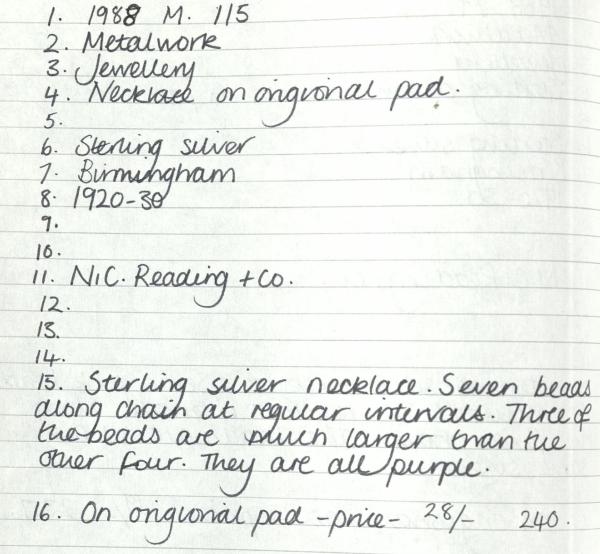 1. 1988 M. 115
2. Metalwork
3. Jewellery
4. Necklace on origional pad.
5.
6. Sterling silver
7. Birmingham
8. 1920-30
9.
10.
11. N.C. Reading + Co.
12.
13.
14.
15. Sterling silver necklace. Seven beads
along chain at regular intervals. Three of
the beads are much larger than the
other four. They are all purple.
16. On origional pad - price - 28/- 240.